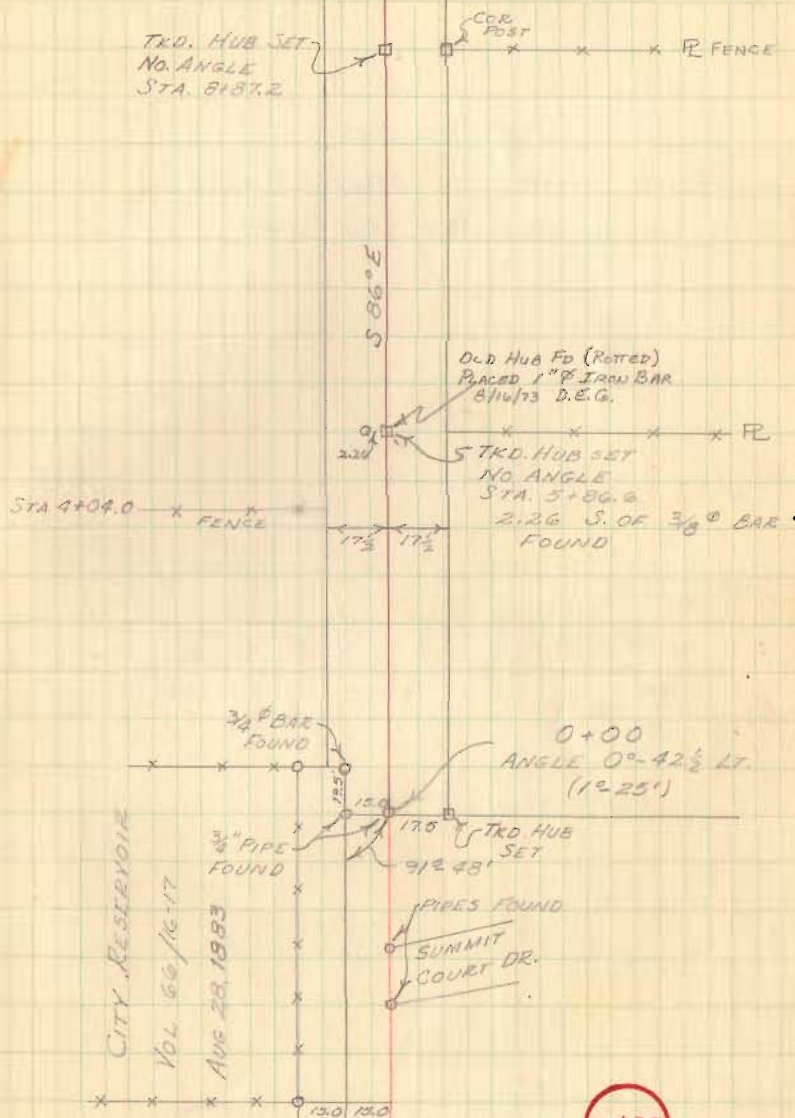 TKD. HUB SET
NO. ANGLE
STA. 8+87.2
COR
POST
PL FENCE
S 86° E
OLD HUB FD (ROTTED)
PLACED 1"Φ IRON BAR
8/16/73 D.E.G.
2.26
PL
TKD. HUB SET
NO ANGLE
STA. 5+86.6
2.26 S. OF 3/8 Φ BAR
FOUND
STA 4+04.0
FENCE
17½ 17½
3/4 Φ BAR
FOUND
0+00
ANGLE 0°-42½ LT.
(1°-25')
19.5
15.0
17.5
3/4" PIPE
FOUND
TKD HUB
SET
91° 48'
PIPES FOUND
SUMMIT
COURT DR.
CITY RESERVOIR
VOL 66/16-17
AUG 28, 1883
15.0 15.0